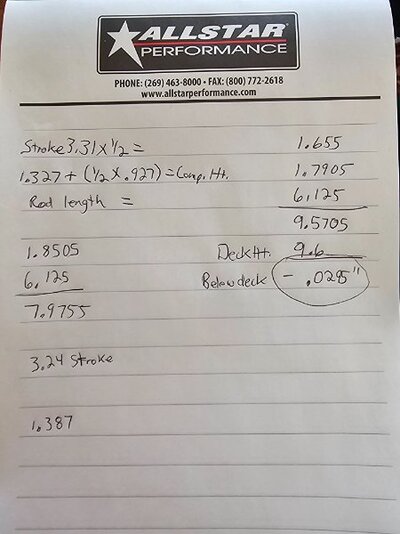 ALLSTAR
PERFORMANCE
PHONE: (269) 463-8000 • FAX: (800) 772-2618
www.allstarperformance.com
Stroke 3.31 x 1/2 = 1.655
1.327 + (1/2 x .927) = Comp. Ht. 1.7905
Rod length = 6.125
9.5705
1.8505 Deck Ht. 9.6
6.125 Below deck - .0295"
7.9755
3.24 Stroke
1.387